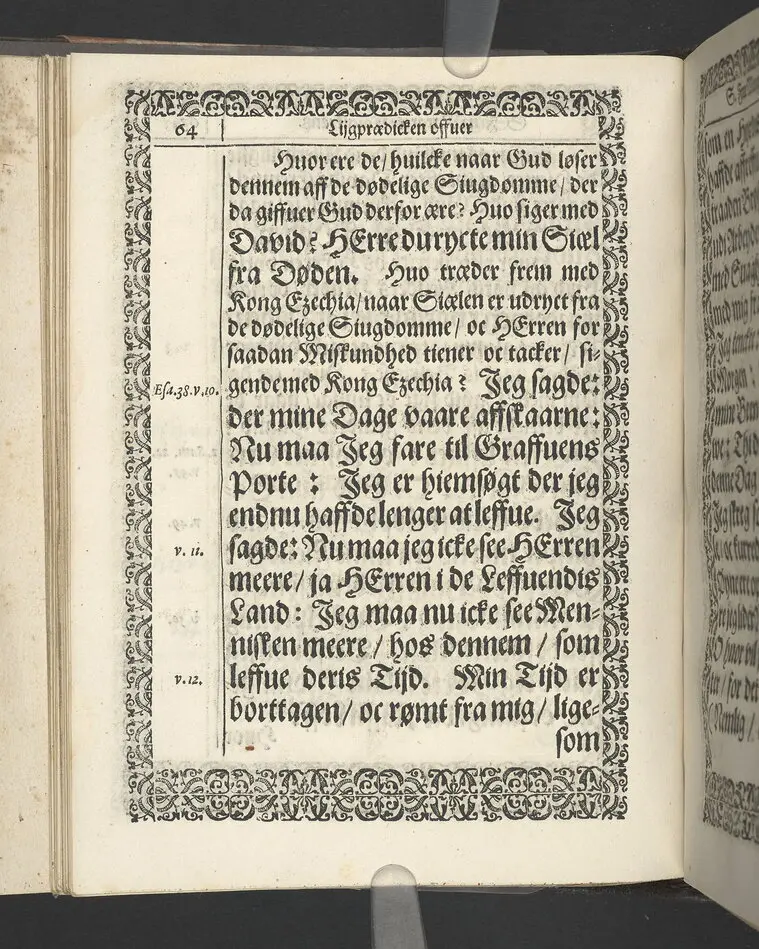 64
Lijgprædicken offuer
Huor ere de/ huilcke naar Gud løser
dennem aff de dødelige Siugdomme/ der
da giffuer Gud derfor ære? Huo siger med
David? HErre du ryckte min Siæl
fra Døden. Huo træder frem med
Kong Ezechia/ naar Siælen er udryct fra
de dødelige Siugdomme/ oc HErren for
saadan Miskundhed tiener oc tacker/ si-
Esa.38.v.10.
gende med Kong Ezechia? Jeg sagde:
der mine Dage vaare affskaarne:
Nu maa Jeg fare til Graffuens
Porte: Jeg er hiemsøgt der jeg
endnu haffde lenger at leffue. Jeg
v. 11.
sagde: Nu maa jeg icke see HErren
meere/ ja HErren i de Leffuendis
Land: Jeg maa nu icke see Men-
nisken meere/ hos dennem/ som
v. 12.
leffue deris Tijd. Min Tijd er
borttagen/ oc rømt fra mig/ lige-
som